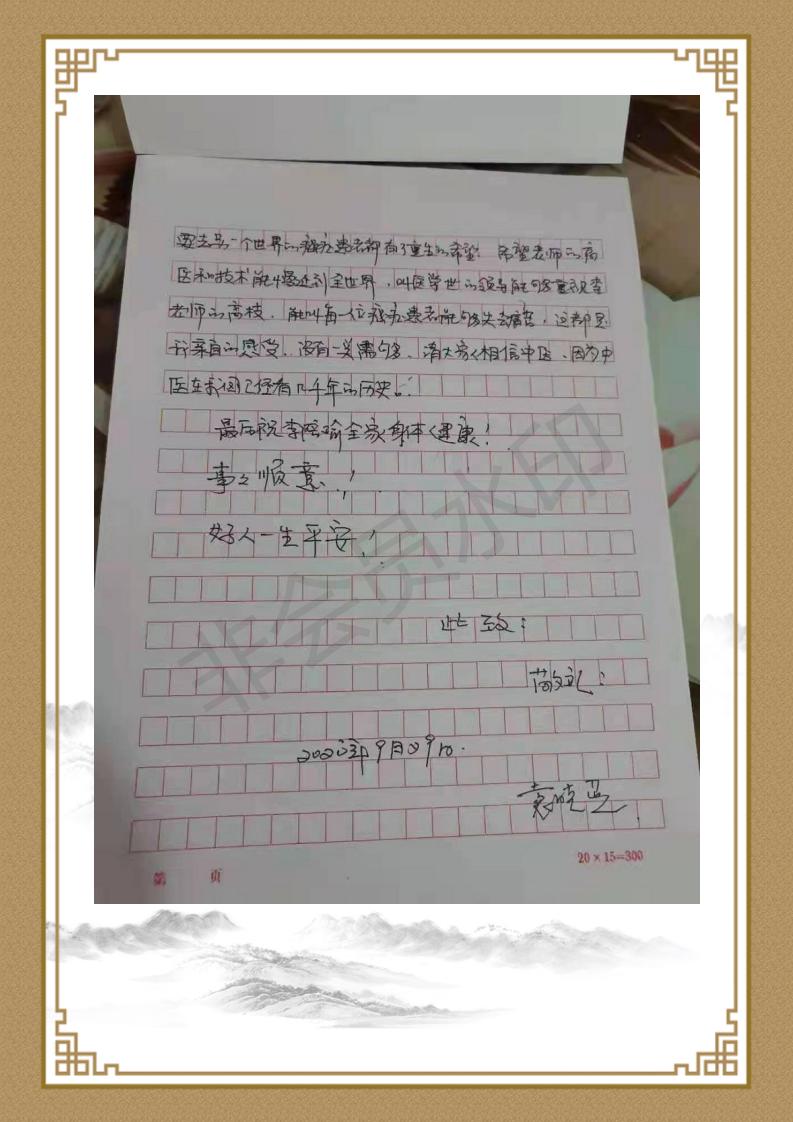 要去另一个世界的癌症患者都有了重生的希望. 希望老师的高
医和技术能够传到全世界，叫医学世的领导能够重视李
老师的高枝，能叫每一位癌症患者能够失去痛苦，这都是
我亲自的感受，没有一关需句多，请大家相信中医，因为中
医在我国已经有几千年的历史。
最后祝李陪瑜全家身体健康！
事々顺意！
好人一生平安！
此致：
敬礼：
9月29日.
袁晓兰
20×15=300
第 页
非会员水印